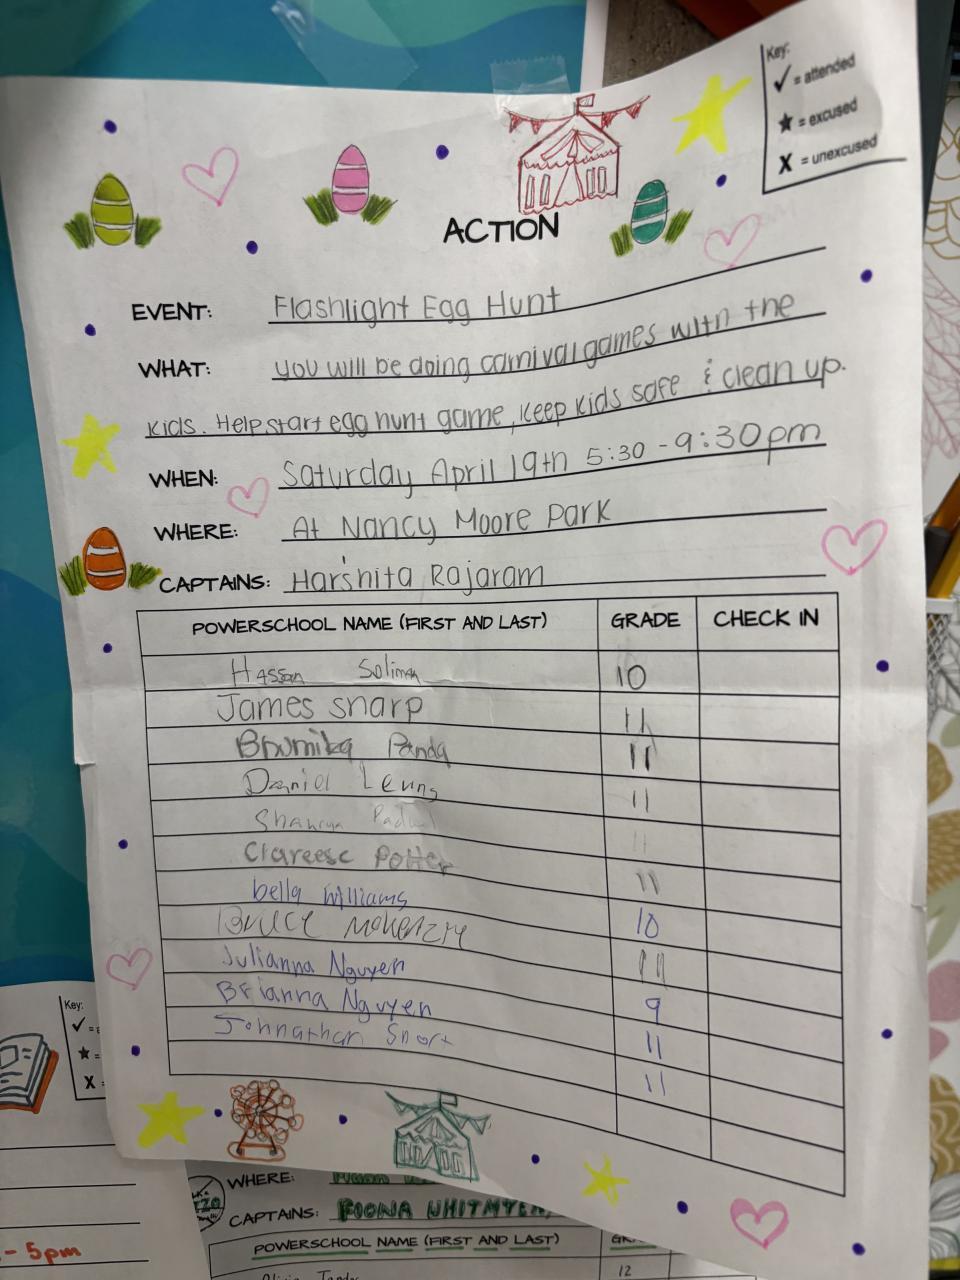 Key:
✓ = attended
★ = excused
X = unexcused
ACTION
EVENT: Flashlight Egg Hunt
WHAT: you will be doing carnival games with the
kids. Help start egg hunt game, keep kids safe & clean up.
WHEN: Saturday April 19th 5:30 - 9:30pm
WHERE: At Nancy Moore Park
CAPTAINS: Harshita Rajaram
POWERSCHOOL NAME (FIRST AND LAST) GRADE CHECK IN
Hassan Soliman 10
James sharp 11
Bhumika Panda 11
Daniel Leung 11
11
Clareese Potter 11
bella Williams 10
Bruce McKenzie 11
Julianna Nguyen 9
Brianna Nguyen 11
Johnathan Short 11
Key:
✓ =
★ =
X
- 5pm
WHERE:
CAPTAINS: POONA WHITMYER,
POWERSCHOOL NAME (FIRST AND LAST)
12